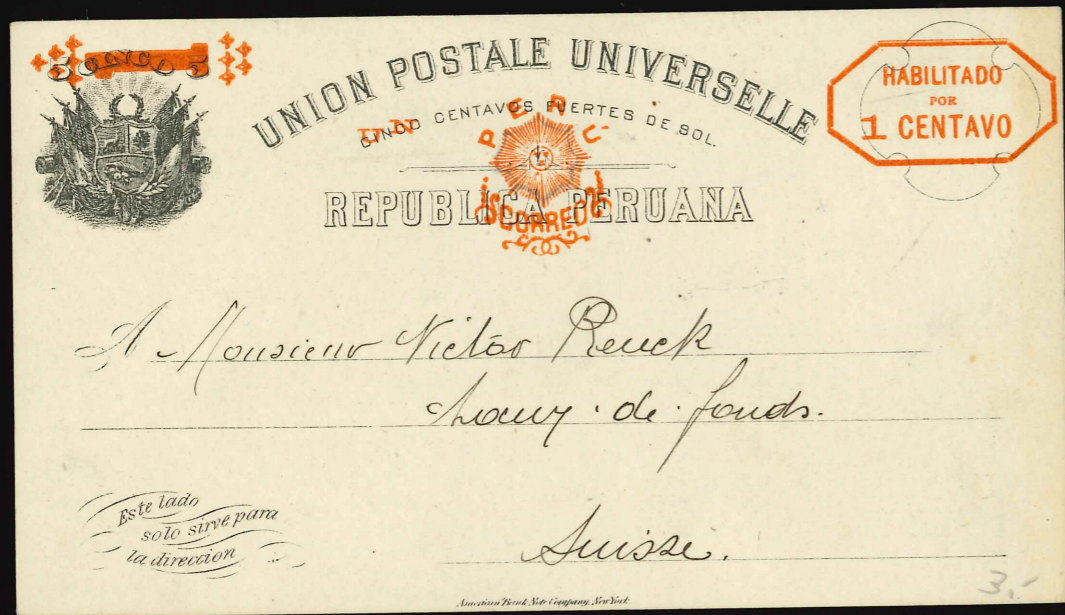 5 CINCO 5
UNION POSTALE UNIVERSELLE
CINCO CENTAVOS FUERTES DE SOL.
UN
PERU
CORREOS
REPUBLICA PERUANA
HABILITADO
POR
1 CENTAVO
A Monsieur Victor Reuck
Chaux de fonds.
Suisse.
Este lado
solo sirve para
la direccion
American Bank Note Company, New York.
3.-